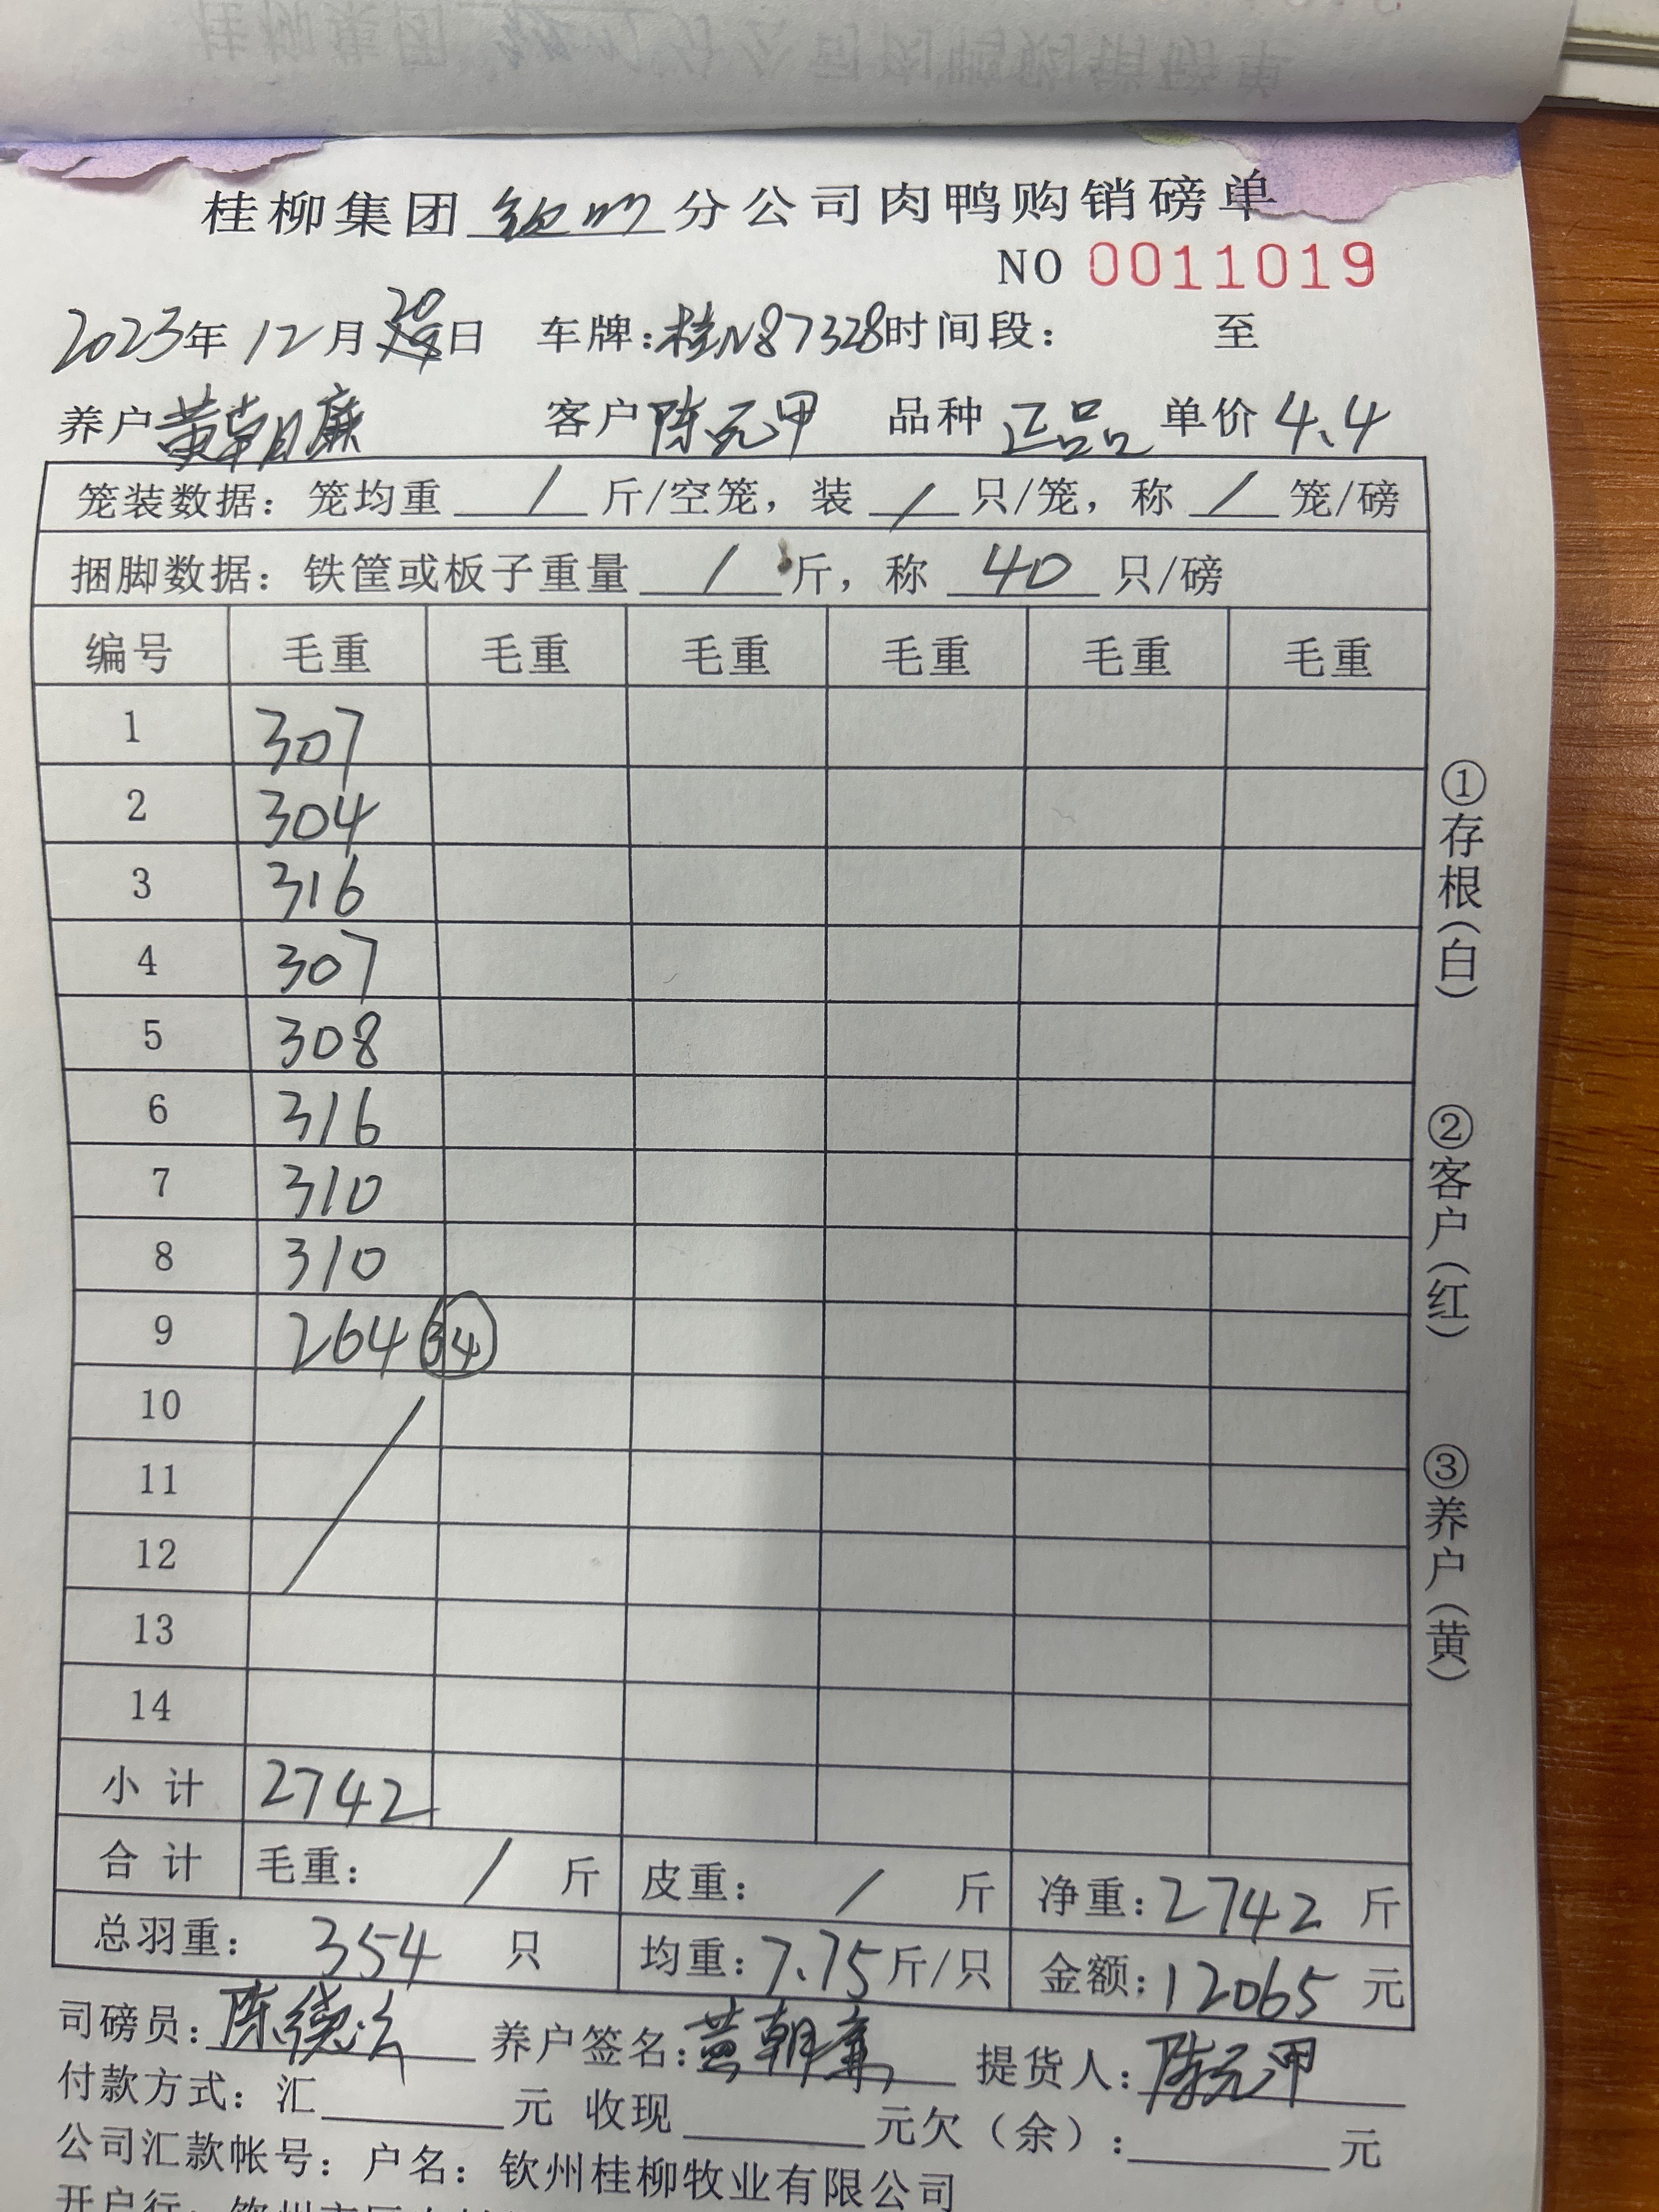 桂柳集团 钦州 分公司肉鸭购销磅单
NO 0011019
2023年 12月 20日 车牌:桂N87328 时间段: 至
养户 黄朝廉 客户 陈元甲 品种 正品 单价 4.4
笼装数据: 笼均重 / 斤/空笼, 装 / 只/笼, 称 / 笼/磅
捆脚数据: 铁筐或板子重量 / 斤, 称 40 只/磅
编号 毛重 毛重 毛重 毛重 毛重 毛重
1 307
2 304
3 316
4 307
5 308
6 316
7 310
8 310
9 264 34
10
11
12
13
14
小计 2742
合计 毛重: / 斤 皮重: / 斤 净重: 2742 斤
总羽重: 354 只 均重: 7.75 斤/只 金额: 12065 元
司磅员: 陈 养户签名: 黄朝廉 提货人: 陈元甲
付款方式: 汇 元 收现 元欠(余): 元
公司汇款帐号: 户名: 钦州桂柳牧业有限公司
开户行:
①存根(白)
②客户(红)
③养户(黄)